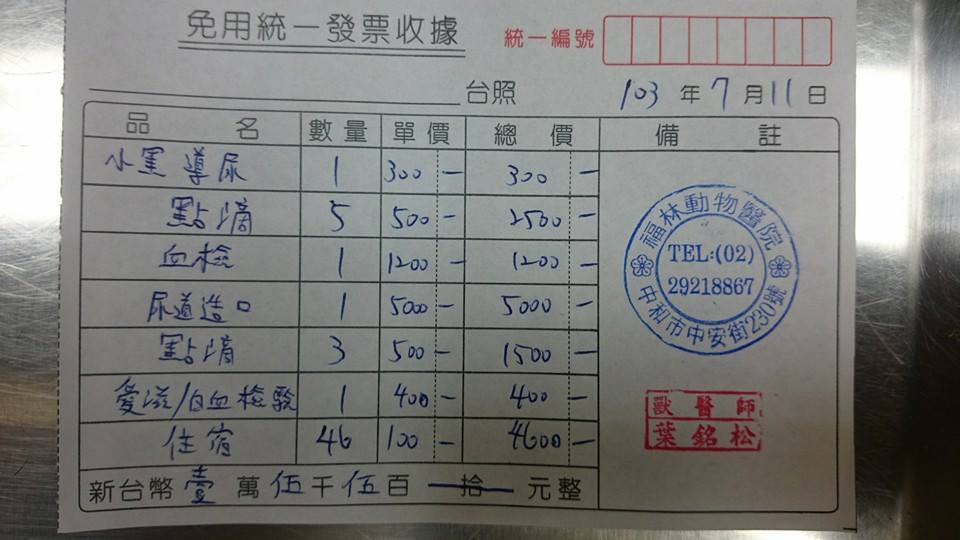 免用統一發票收據
統一編號
台照 103 年 7 月 11 日
品名 數量 單價 總價 備註
小黑 導尿 1 300 — 300 —
點滴 5 500 — 2500 —
血檢 1 1200 — 1200 —
尿道造口 1 5000 — 5000 —
點滴 3 500 — 1500 —
愛滋/白血檢驗 1 400 — 400 —
住宿 46 100 — 4600 —
新台幣 壹 萬 伍 千 伍 百 拾 元整
福林動物醫院
TEL:(02)
29218867
中和市中安街230號
獸醫師
葉銘松